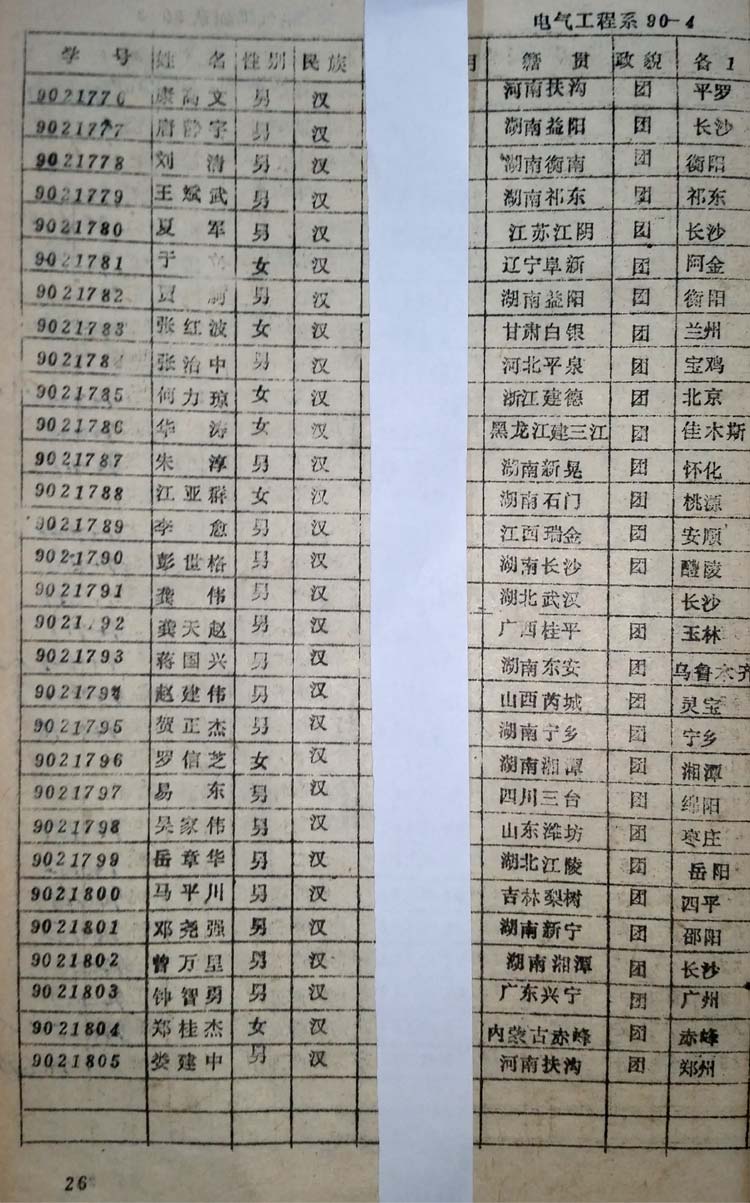 电气工程系90-4
学号 姓名 性别 民族 籍贯 政貌 备1
9021776 康高文 男 汉 河南扶沟 团 平罗
9021777 唐静宇 男 汉 湖南益阳 团 长沙
9021778 刘清 男 汉 湖南衡南 团 衡阳
9021779 王斌武 男 汉 湖南祁东 团 祁东
9021780 夏军 男 汉 江苏江阴 团 长沙
9021781 于 女 汉 辽宁阜新 团 阿金
9021782 男 汉 湖南益阳 团 衡阳
9021783 张红波 女 汉 甘肃白银 团 兰州
902178 张治中 男 汉 河北平泉 团 宝鸡
9021785 何力琼 女 汉 浙江建德 团 北京
9021786 华涛 女 汉 黑龙江建三江 团 佳木斯
9021787 朱淳 男 汉 湖南新晃 团 怀化
9021788 江亚群 女 汉 湖南石门 团 桃源
9021789 李愈 男 汉 江西瑞金 团 安顺
9021790 彭世格 男 汉 湖南长沙 团 醴陵
9021791 龚伟 男 汉 湖北武汉 长沙
9021792 龚天赵 男 汉 广西桂平 团 玉林
9021793 蒋国兴 男 汉 湖南东安 团 乌鲁木齐
9021794 赵建伟 男 汉 山西芮城 团 灵宝
9021795 贺正杰 男 汉 湖南宁乡 团 宁乡
9021796 罗信芝 女 汉 湖南湘潭 团 湘潭
9021797 易东 男 汉 四川三台 团 绵阳
9021798 吴家伟 男 汉 山东潍坊 团 枣庄
9021799 岳章华 男 汉 湖北江陵 团 岳阳
9021800 马平川 男 汉 吉林梨树 团 四平
9021801 邓尧强 男 汉 湖南新宁 团 邵阳
9021802 曾万里 男 汉 湖南湘潭 团 长沙
9021803 钟智勇 男 汉 广东兴宁 团 广州
9021804 郑桂杰 女 汉 内蒙古赤峰 团 赤峰
9021805 娄建中 男 汉 河南扶沟 团 郑州
26